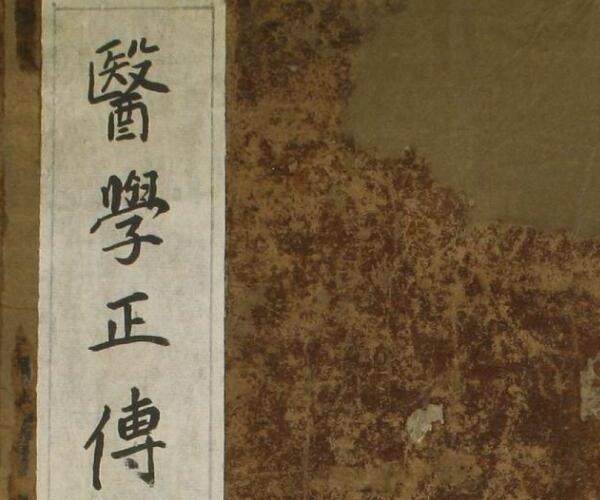 醫學正傳